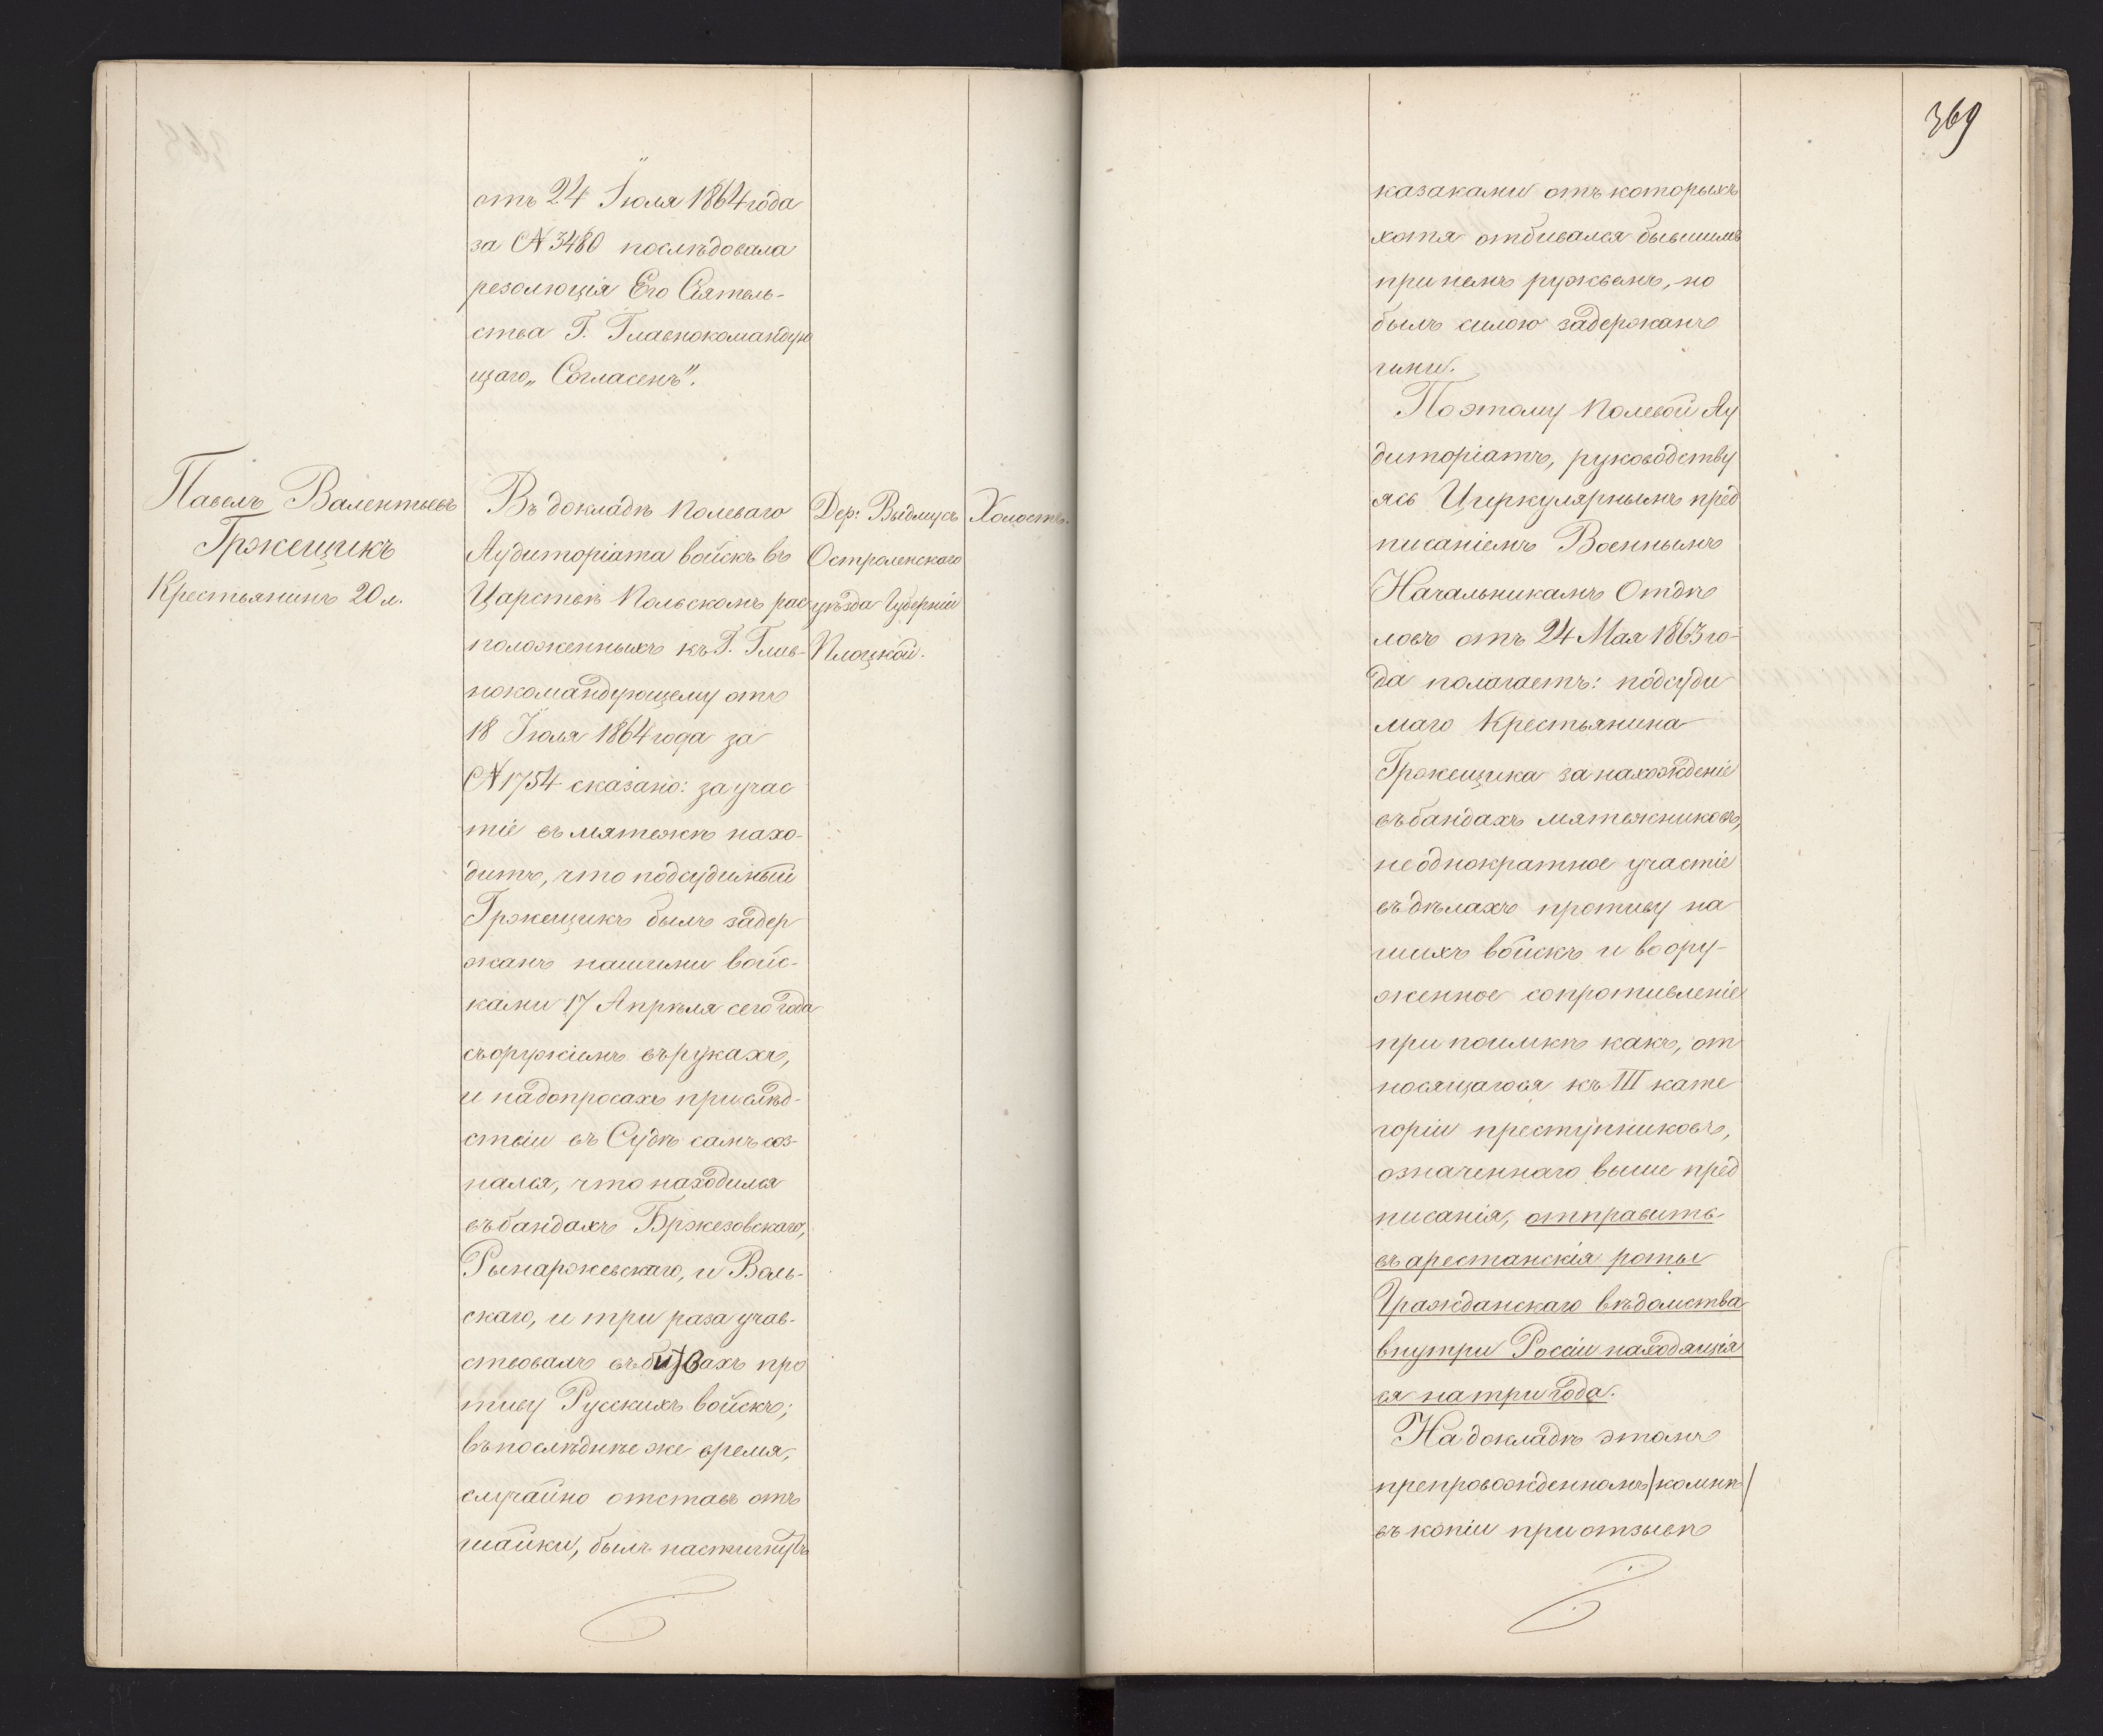 отъ 24 Іюля 1864 года
за № 3480 послѣдовала
резолюція Его Сіятель-
ства Г. Главнокомандую
щаго „Согласенъ".
Павелъ Валентьевъ
Гржещикъ
Крестьянинъ 20 л.
Въ докладѣ Полеваго
Аудиторіата войскъ въ
Царствѣ Польскомъ рас
положенныхъ къ Г. Глав-
нокомандующему отъ
18 Іюля 1864 года за
№ 1754 сказано: за учас
тіе въ мятежѣ нахо-
дитъ, что подсудимый
Гржещикъ былъ задер
жанъ нашими войс-
ками 17 Апрѣля сего года
съ оружіемъ въ рукахъ,
и на допросахъ при слѣд-
ствіи въ Судѣ самъ соз-
нался, что находился
въ бандахъ Бржезовскаго,
Рынаржевскаго, и Воль-
скаго, и три раза учав-
ствовалъ въ битвахъ про
тиву Русскихъ войскъ;
въ послѣднѣе же время,
случайно отставъ отъ
шайки, былъ настигнутъ
Дер: Выдмусъ
Остроленскаго
уѣзда Губерніи
Плоцкой.
Холостъ.
369
казаками отъ которыхъ
хотя отбивался бывшимъ
при немъ ружьемъ, но
былъ силою задержанъ
ими.
По этому Полевой Ау
диторіатъ, руководству
ясь Циркулярнымъ пред
писаніемъ Военнымъ
Начальникамъ Отдѣ
ловъ отъ 24 Мая 1863 го-
да полагаетъ: подсуди
маго Крестьянина
Гржещика за нахожденіе
въ бандахъ мятежниковъ,
неоднократное участіе
въ дѣлахъ противу на
шихъ войскъ и воору-
женное сопротивленіе
при поимкѣ какъ, от
носящагося къ III кате
горіи преступниковъ,
означеннаго выше пред
писанія, отправить
въ арестанскія роты
Гражданскаго вѣдомства
внутри Росіи находящія
ся на три года.
На докладѣ этомъ
препровожденномъ /ко мнѣ/
въ копіи при отзывѣ